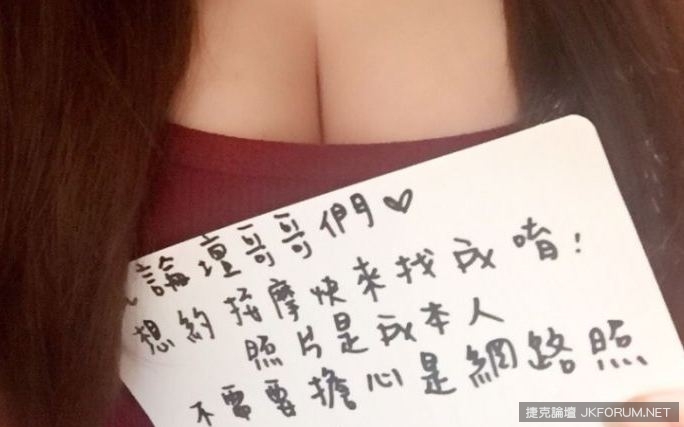 論壇哥哥們♡
想約按摩快來找我唷!
照片是我本人
不需要擔心是網路照
捷克論壇 JKFORUM.NET